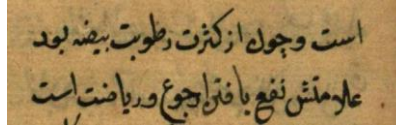 است و چون از کثرت رطوبت بیضه بود
علامتش نفع یافتن از جوع و ریاضت است